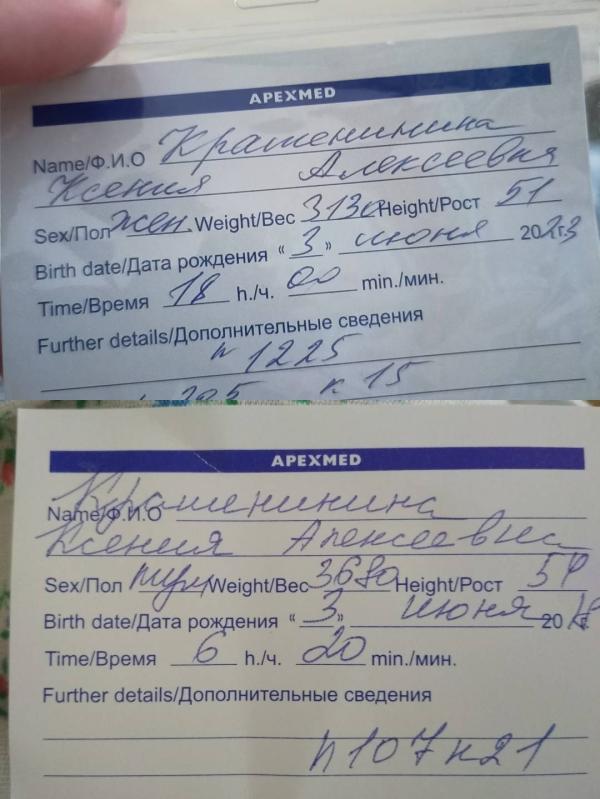 APEXMED
Name/Ф.И.О Крашенинина
Ксения Алексеевна
Sex/Пол жен. Weight/Вес 3130 Height/Рост 51
Birth date/Дата рождения “ 3 ” июня 2023
Time/Время 18 h./ч. 00 min./мин.
Further details/Дополнительные сведения
n 1225
к 15
APEXMED
Name/Ф.И.О Крашенинина
Ксения Алексеевна
Sex/Пол муж Weight/Вес 3680 Height/Рост 54
Birth date/Дата рождения “ 3 ” июня 20
Time/Время 6 h./ч. 20 min./мин.
Further details/Дополнительные сведения
n 107 к 21